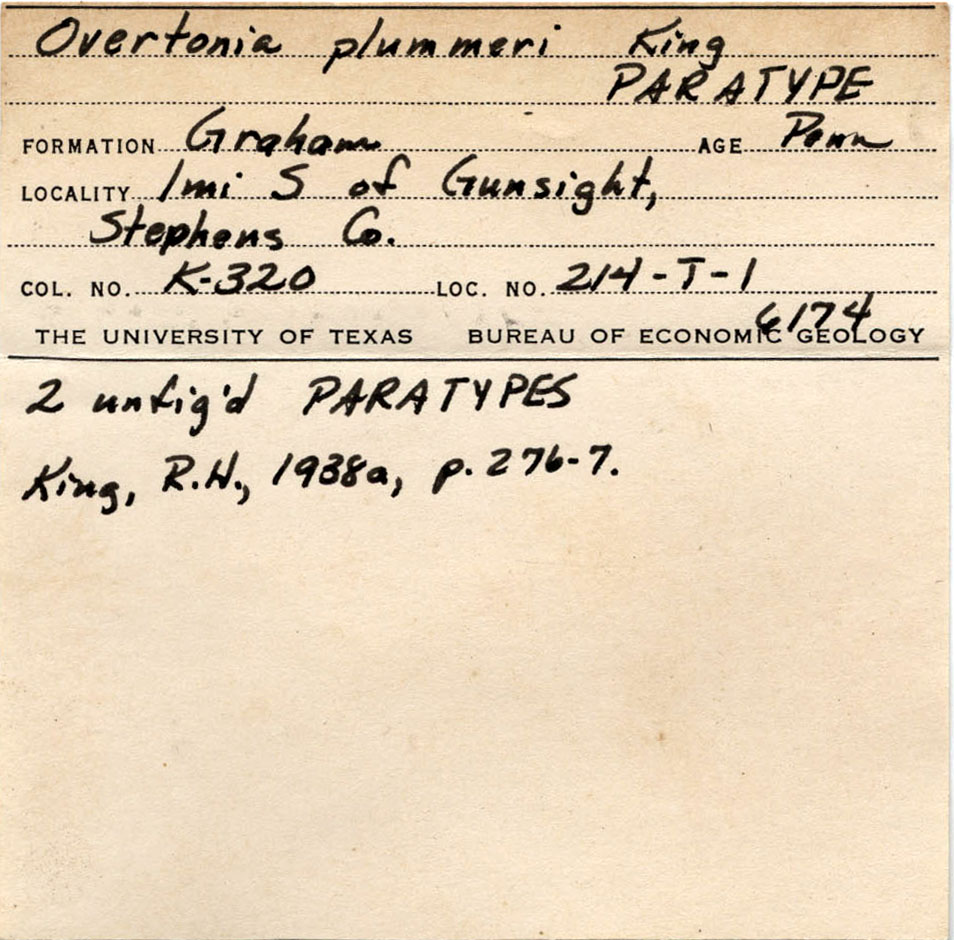 Overtonia plummeri King
PARATYPE
FORMATION Graham AGE Penn
LOCALITY 1mi S of Gunsight,
Stephens Co.
COL. NO. K-320 LOC. NO. 214-T-1
6174
THE UNIVERSITY OF TEXAS BUREAU OF ECONOMIC GEOLOGY
2 unfig'd PARATYPES
King, R.H., 1938a, p. 276-7.